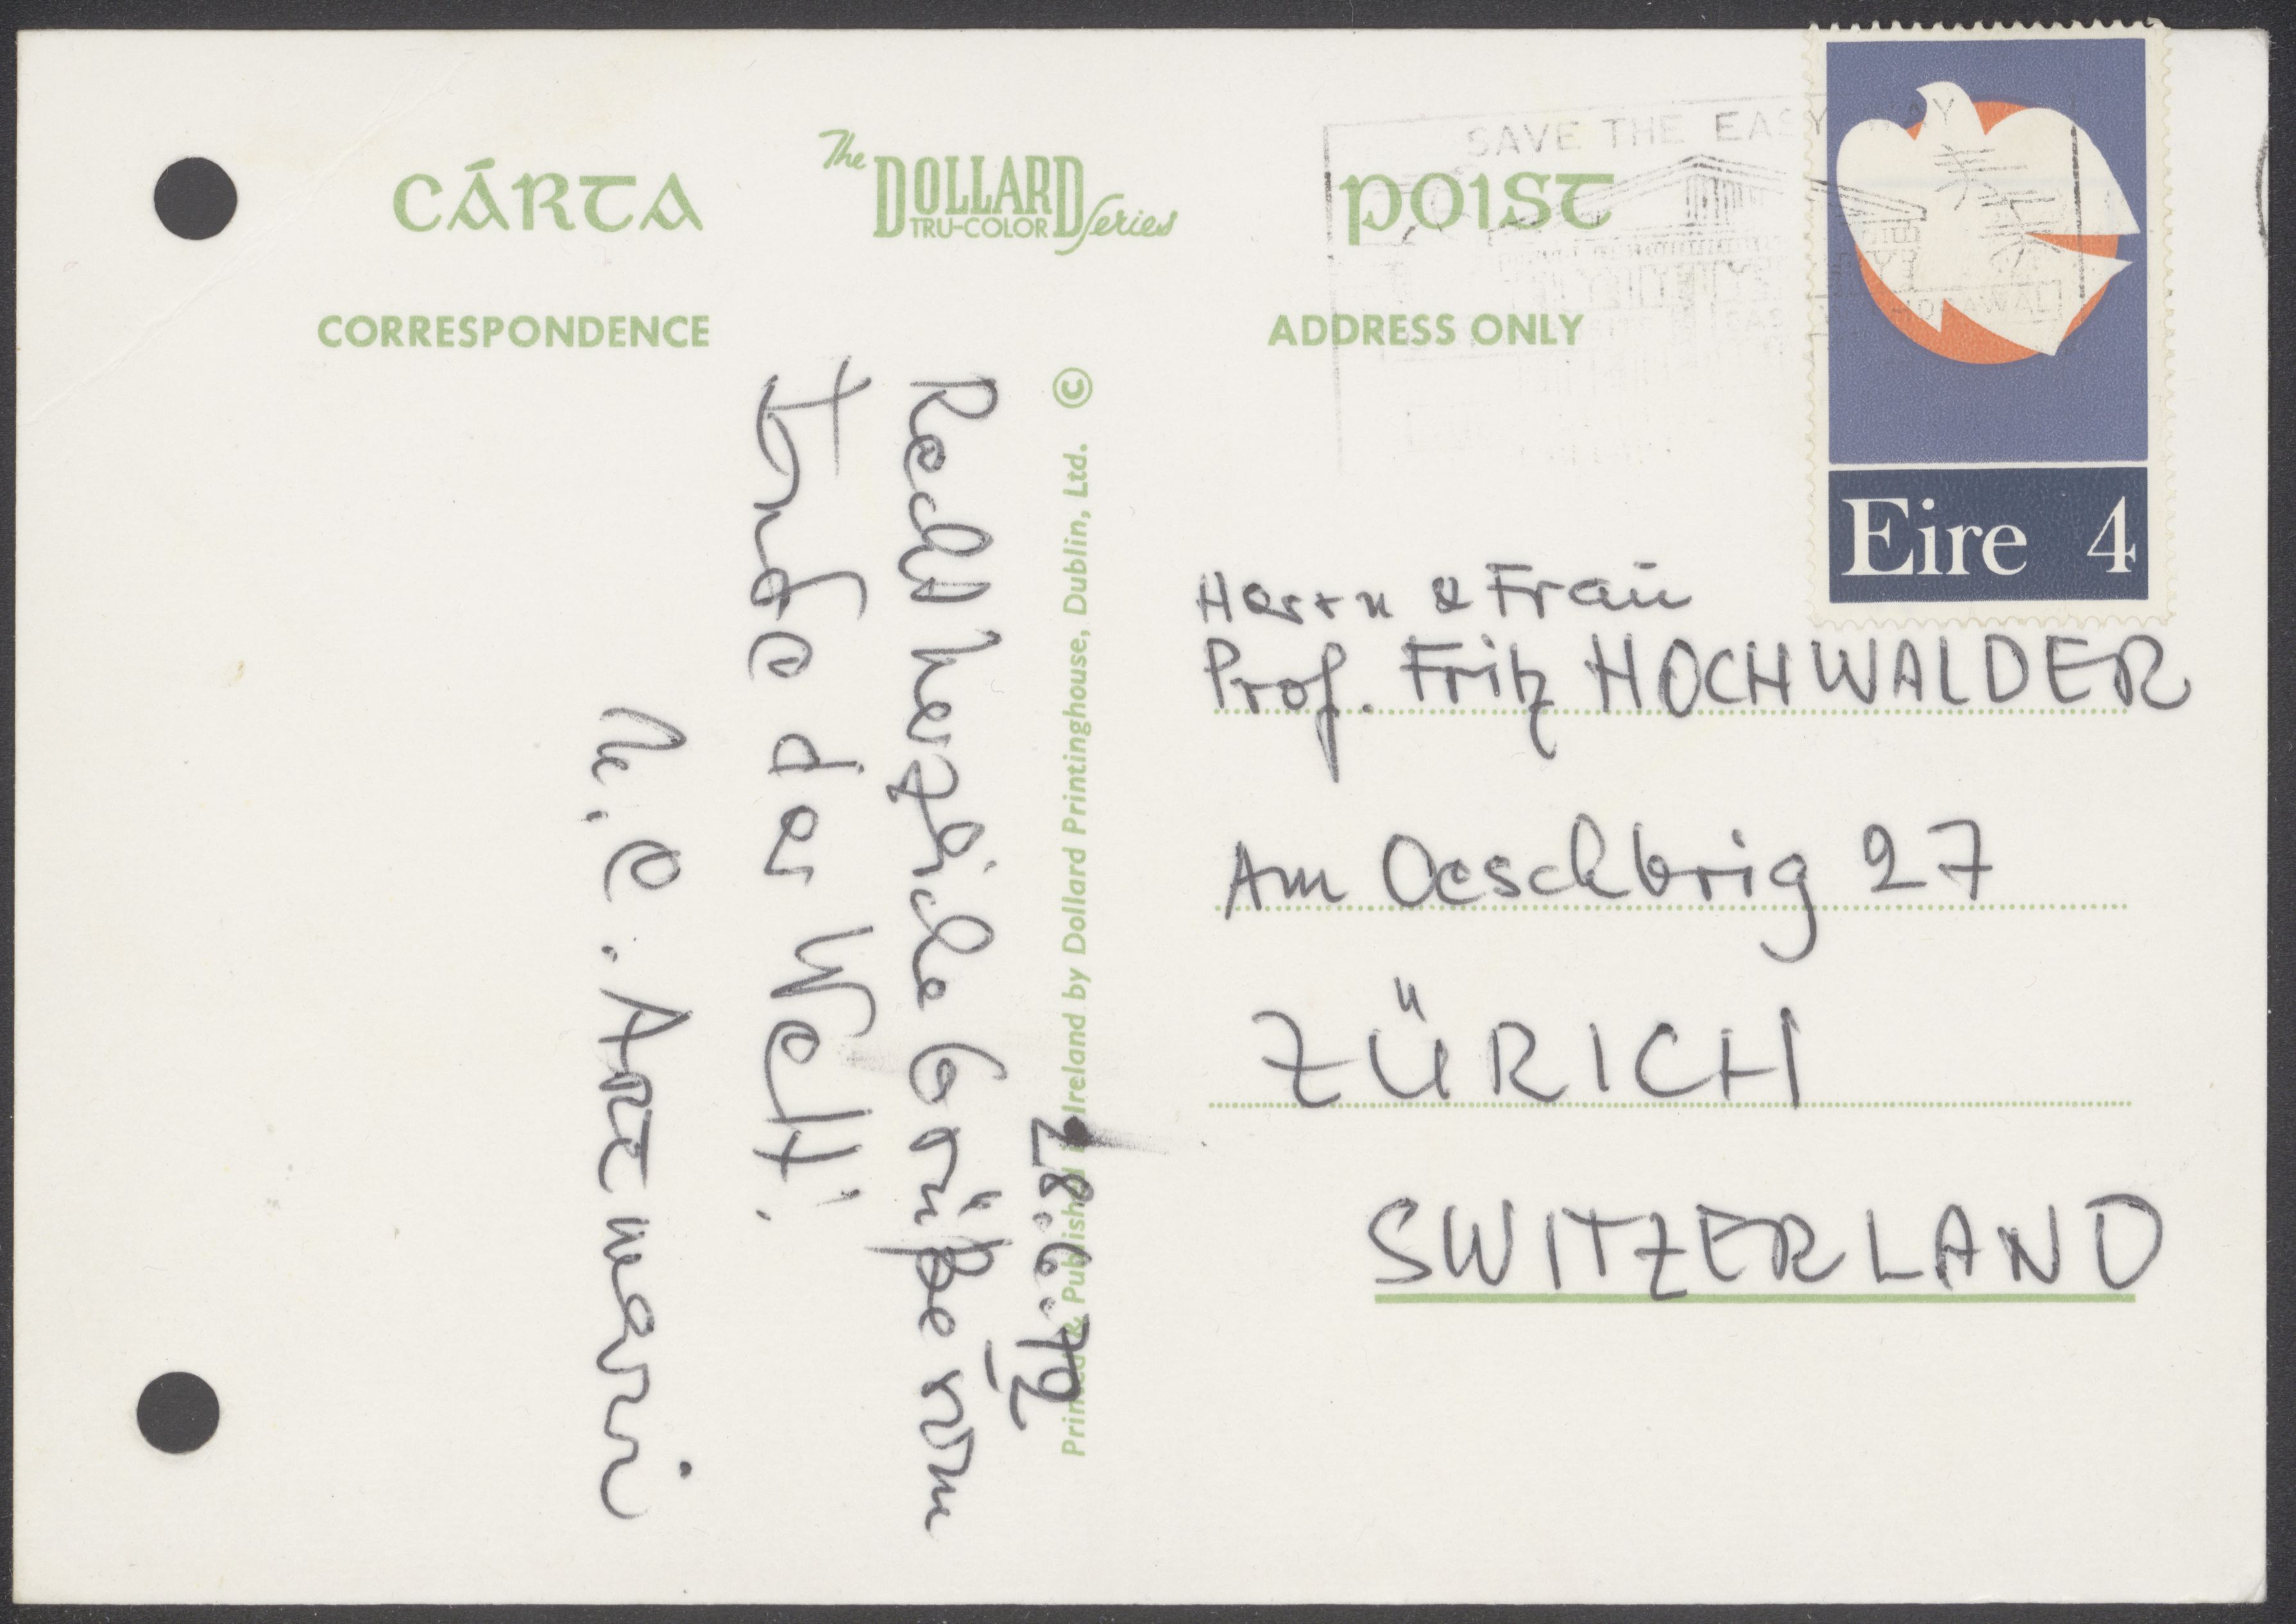 CÁRTA
The DOLLARD TRU-COLOR Series
POIST
CORRESPONDENCE
ADDRESS ONLY
SAVE THE EASY WAY
Eire 4
28.6.72
Recht herzliche Grüße vom
Ende der Welt!
A
Printed & Published Ireland by Dollard Printinghouse, Dublin, Ltd. ©
Herrn & Frau
Prof. Fritz HOCHWALDER
Am Oeschbrig 27
ZÜRICH
SWITZERLAND